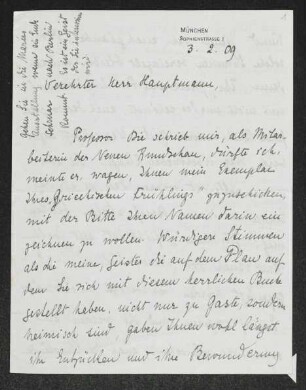 MÜNCHEN
SOPHIENSTRASSE 7.
3. 2. 09
Verehrter Herr Hauptmann
Professor Bie schrieb mir, als Mitar-
beiterin der Neuen Rundschau, dürfte ich,
meinte er, wagen, Ihnen mein Exemplar
Ihres „Griechischen Frühlings" zuzuschicken,
mit der Bitte Ihren Namen darin ein
zeichnen zu wollen. Würdigere Stimmen
als die meine, Geister die auf dem Plan auf
dem Sie sich mit diesem herrlichen Buche
gestellt haben, nicht nur zu Gaste, sondern
heimisch sind, gaben Ihnen wohl längst
ihr Entzücken und ihre Bewunderung
Gehen Sie in die Marées
Ausstellung wenn sie
nach Berlin
kommt
es ist ein Geist
wird